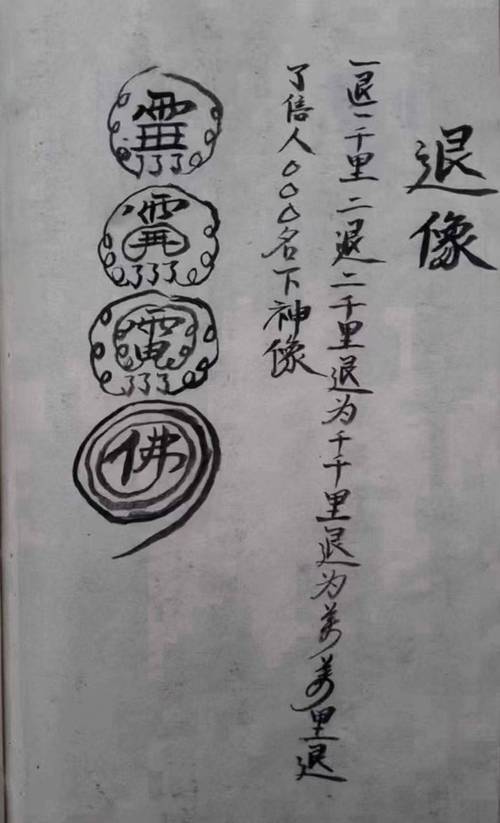 退像
一退一千里二退二千里退为千千里退为万万里退
了信人〇〇〇名下神像
佛